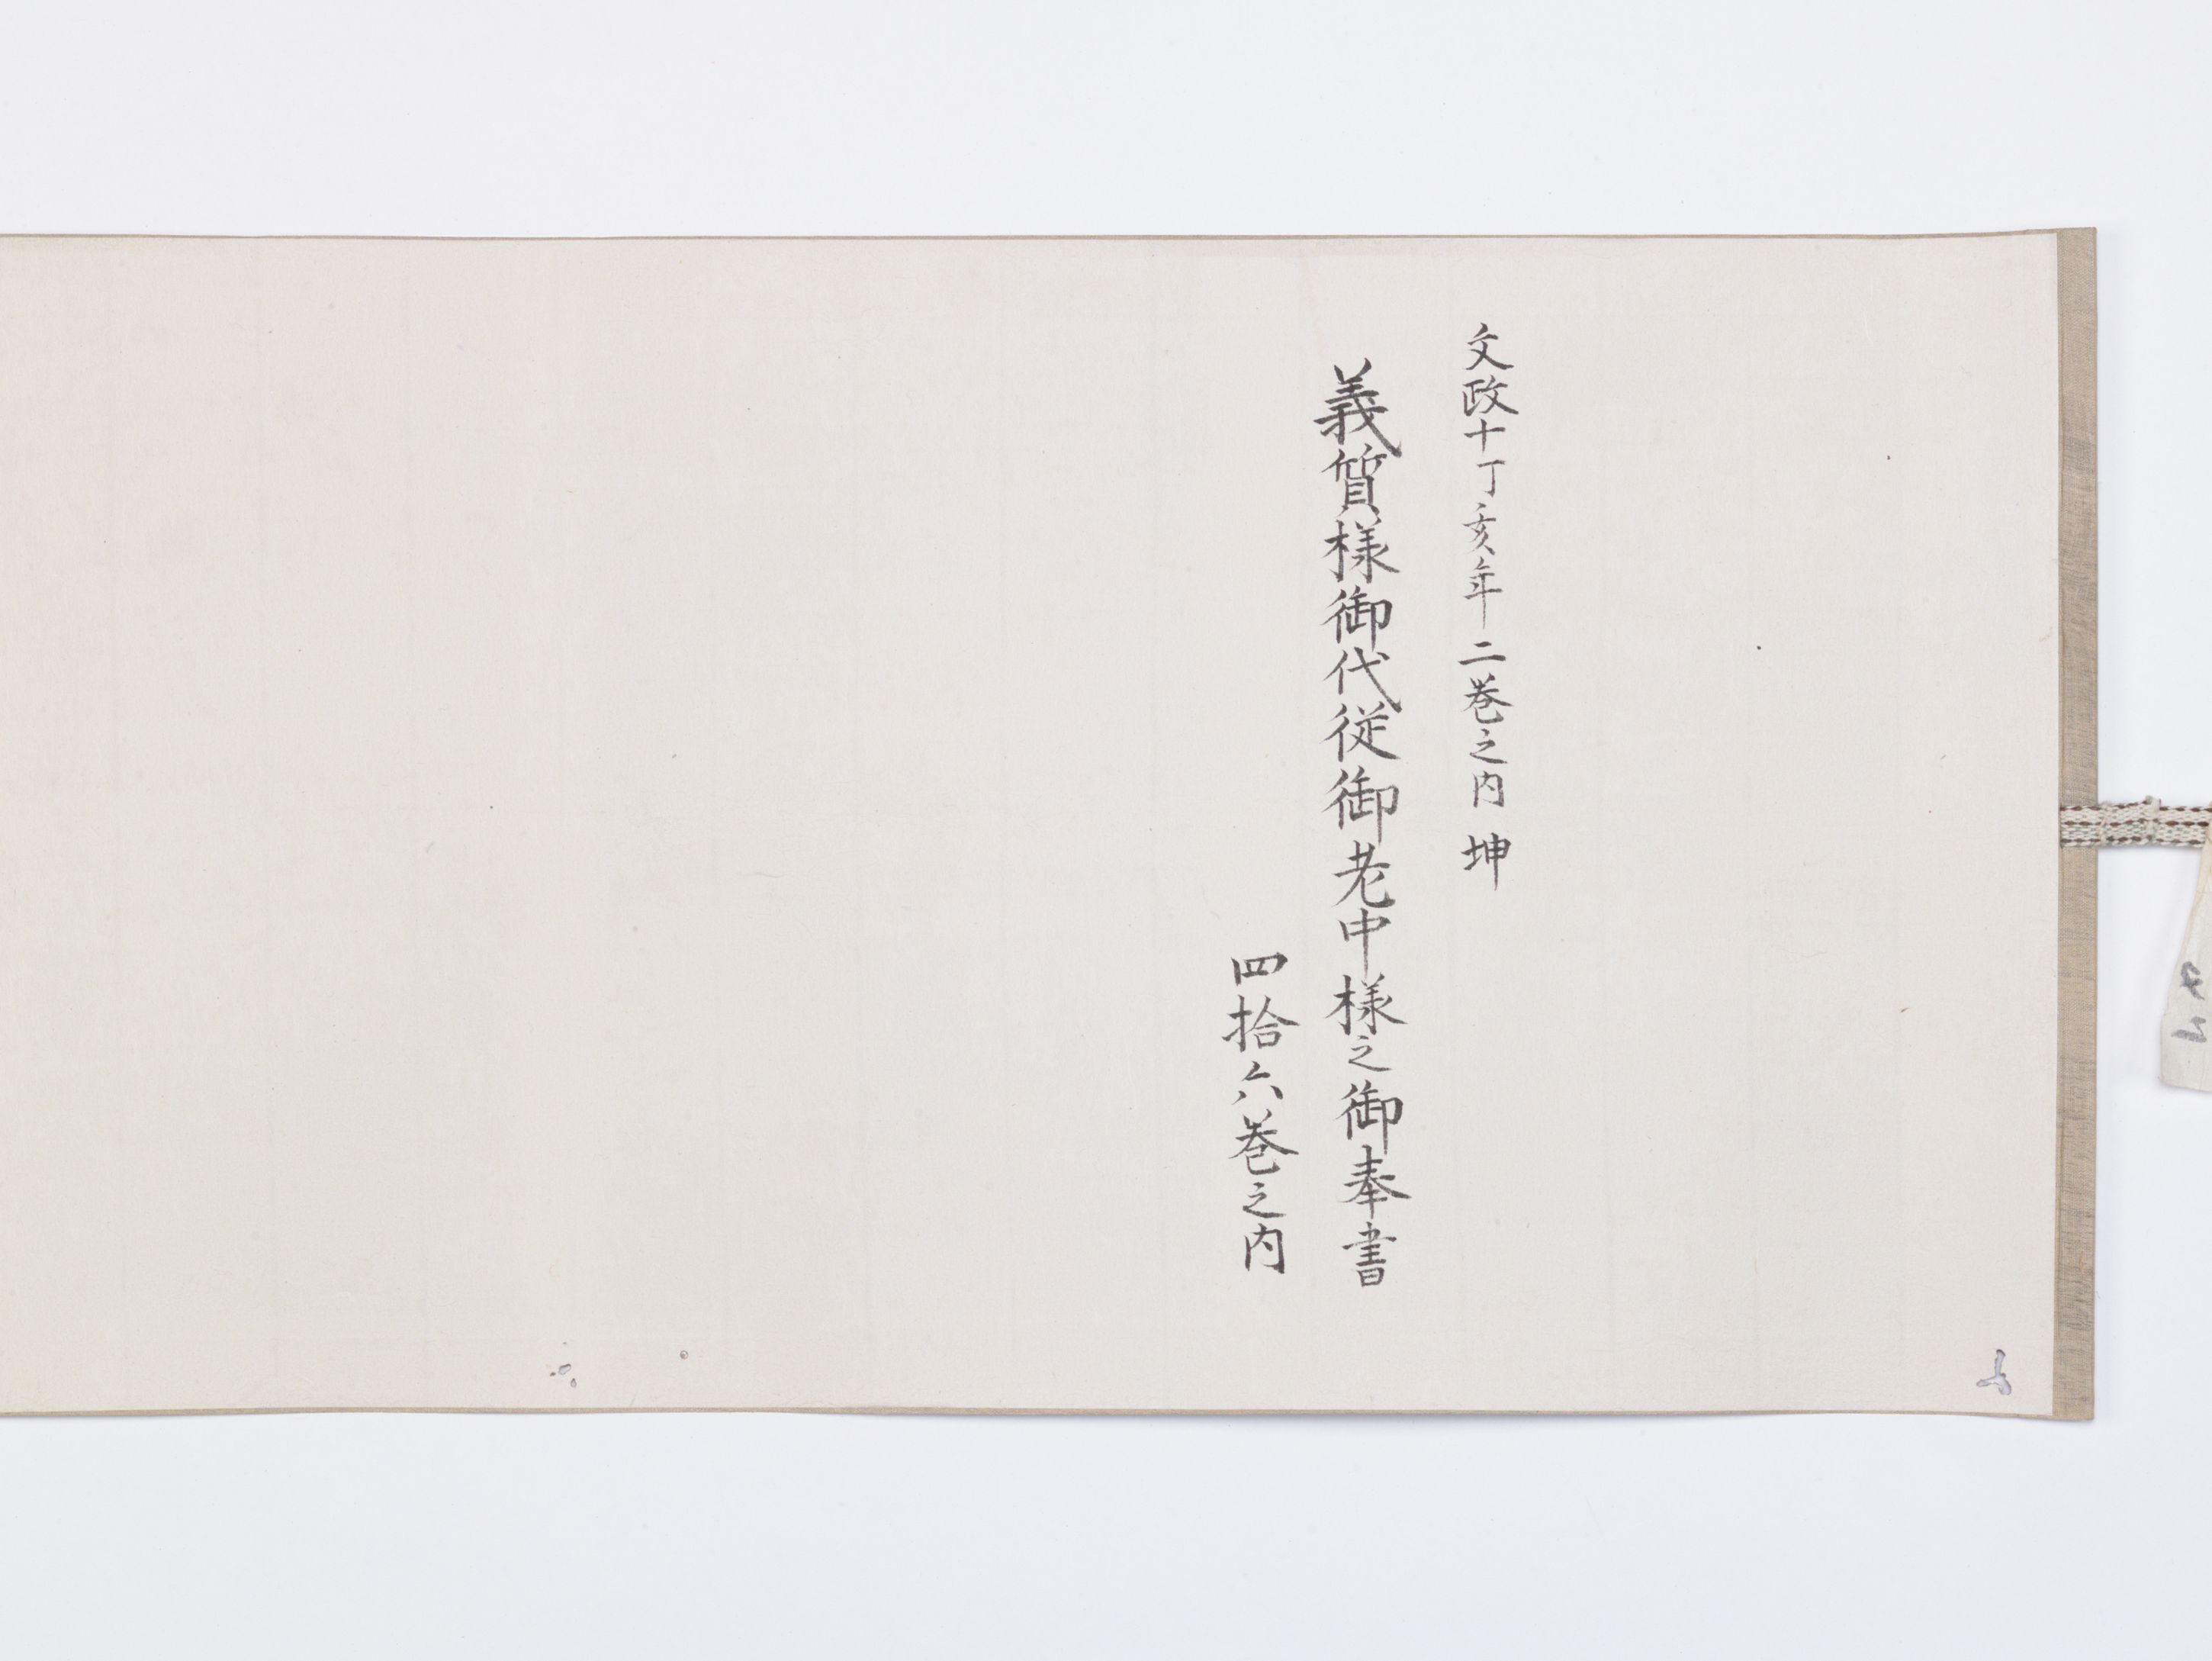 文政十丁亥年二巻之内 坤
義質様御代従御老中様之御奉書
四拾六巻之内